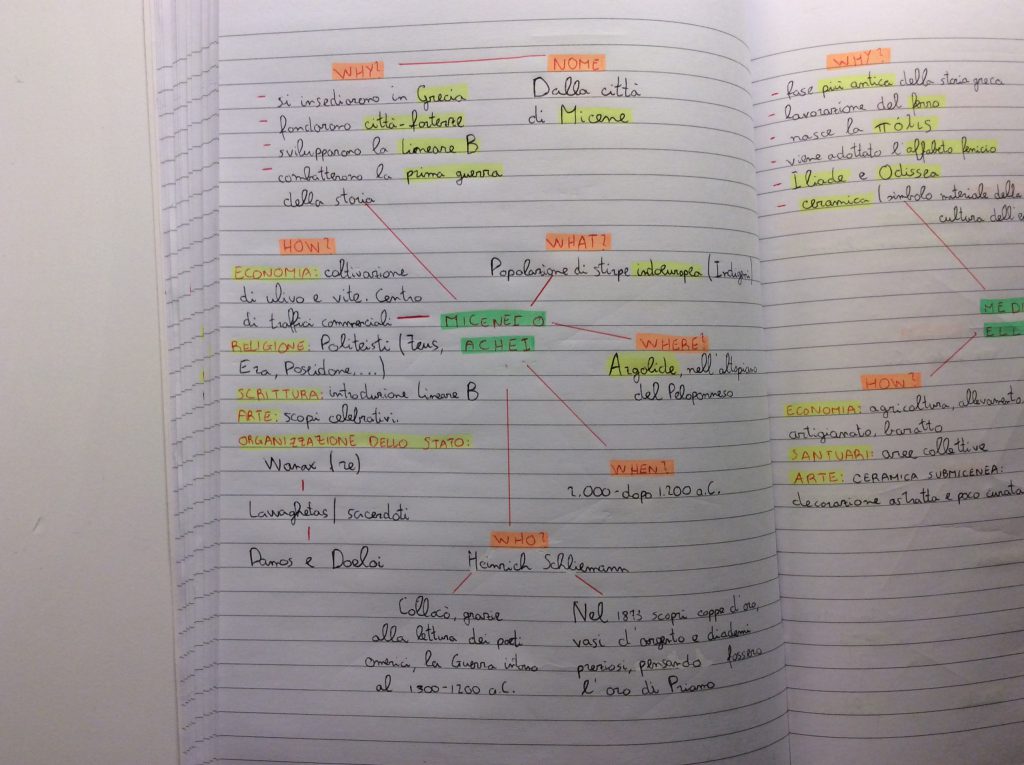 WHY?
- si insediarono in Grecia
- fondarono città-fortezze
- svilupparono la lineare B
- combatterono la prima guerra
della storia
NOME
Dalla città
di Micene
HOW?
ECONOMIA: coltivazione
di ulivo e vite. Centro
di traffici commerciali
RELIGIONE: Politeisti (Zeus,
Era, Poseidone,...)
SCRITTURA: introduzione lineare B
ARTE: scopi celebrativi.
ORGANIZZAZIONE DELLO STATO:
Wanax (re)
Lawaghetas/ sacerdoti
Damos e Doeloi
WHAT?
Popolazione di stirpe indoeuropea (Indigeni)
MICENEI O
ACHEI
WHERE?
Argolide, nell'altopiano
del Peloponneso
WHEN?
2.000-dopo 1.200 a.C.
WHO?
Heinrich Schliemann
Collocò, grazie
alla lettura dei poeti
omerici, la Guerra intorno
al 1300-1200 a.C.
Nel 1873 scoprì coppe d'oro,
vasi d'argento e diademi
preziosi, pensando fossero
l'oro di Priamo
WHY?
- fase più antica della storia greca
- lavorazione del ferro
- nasce la πόλις
- viene adottato l'alfabeto fenicio
- Iliade e Odissea
- ceramica (simbolo materiale della
cultura dell'e
MEDI
ELL
HOW?
ECONOMIA: agricoltura, allevamento,
artigianato, baratto
SANTUARI: aree collettive
ARTE: CERAMICA SUBMICENEA:
decorazione astratta e poco curata